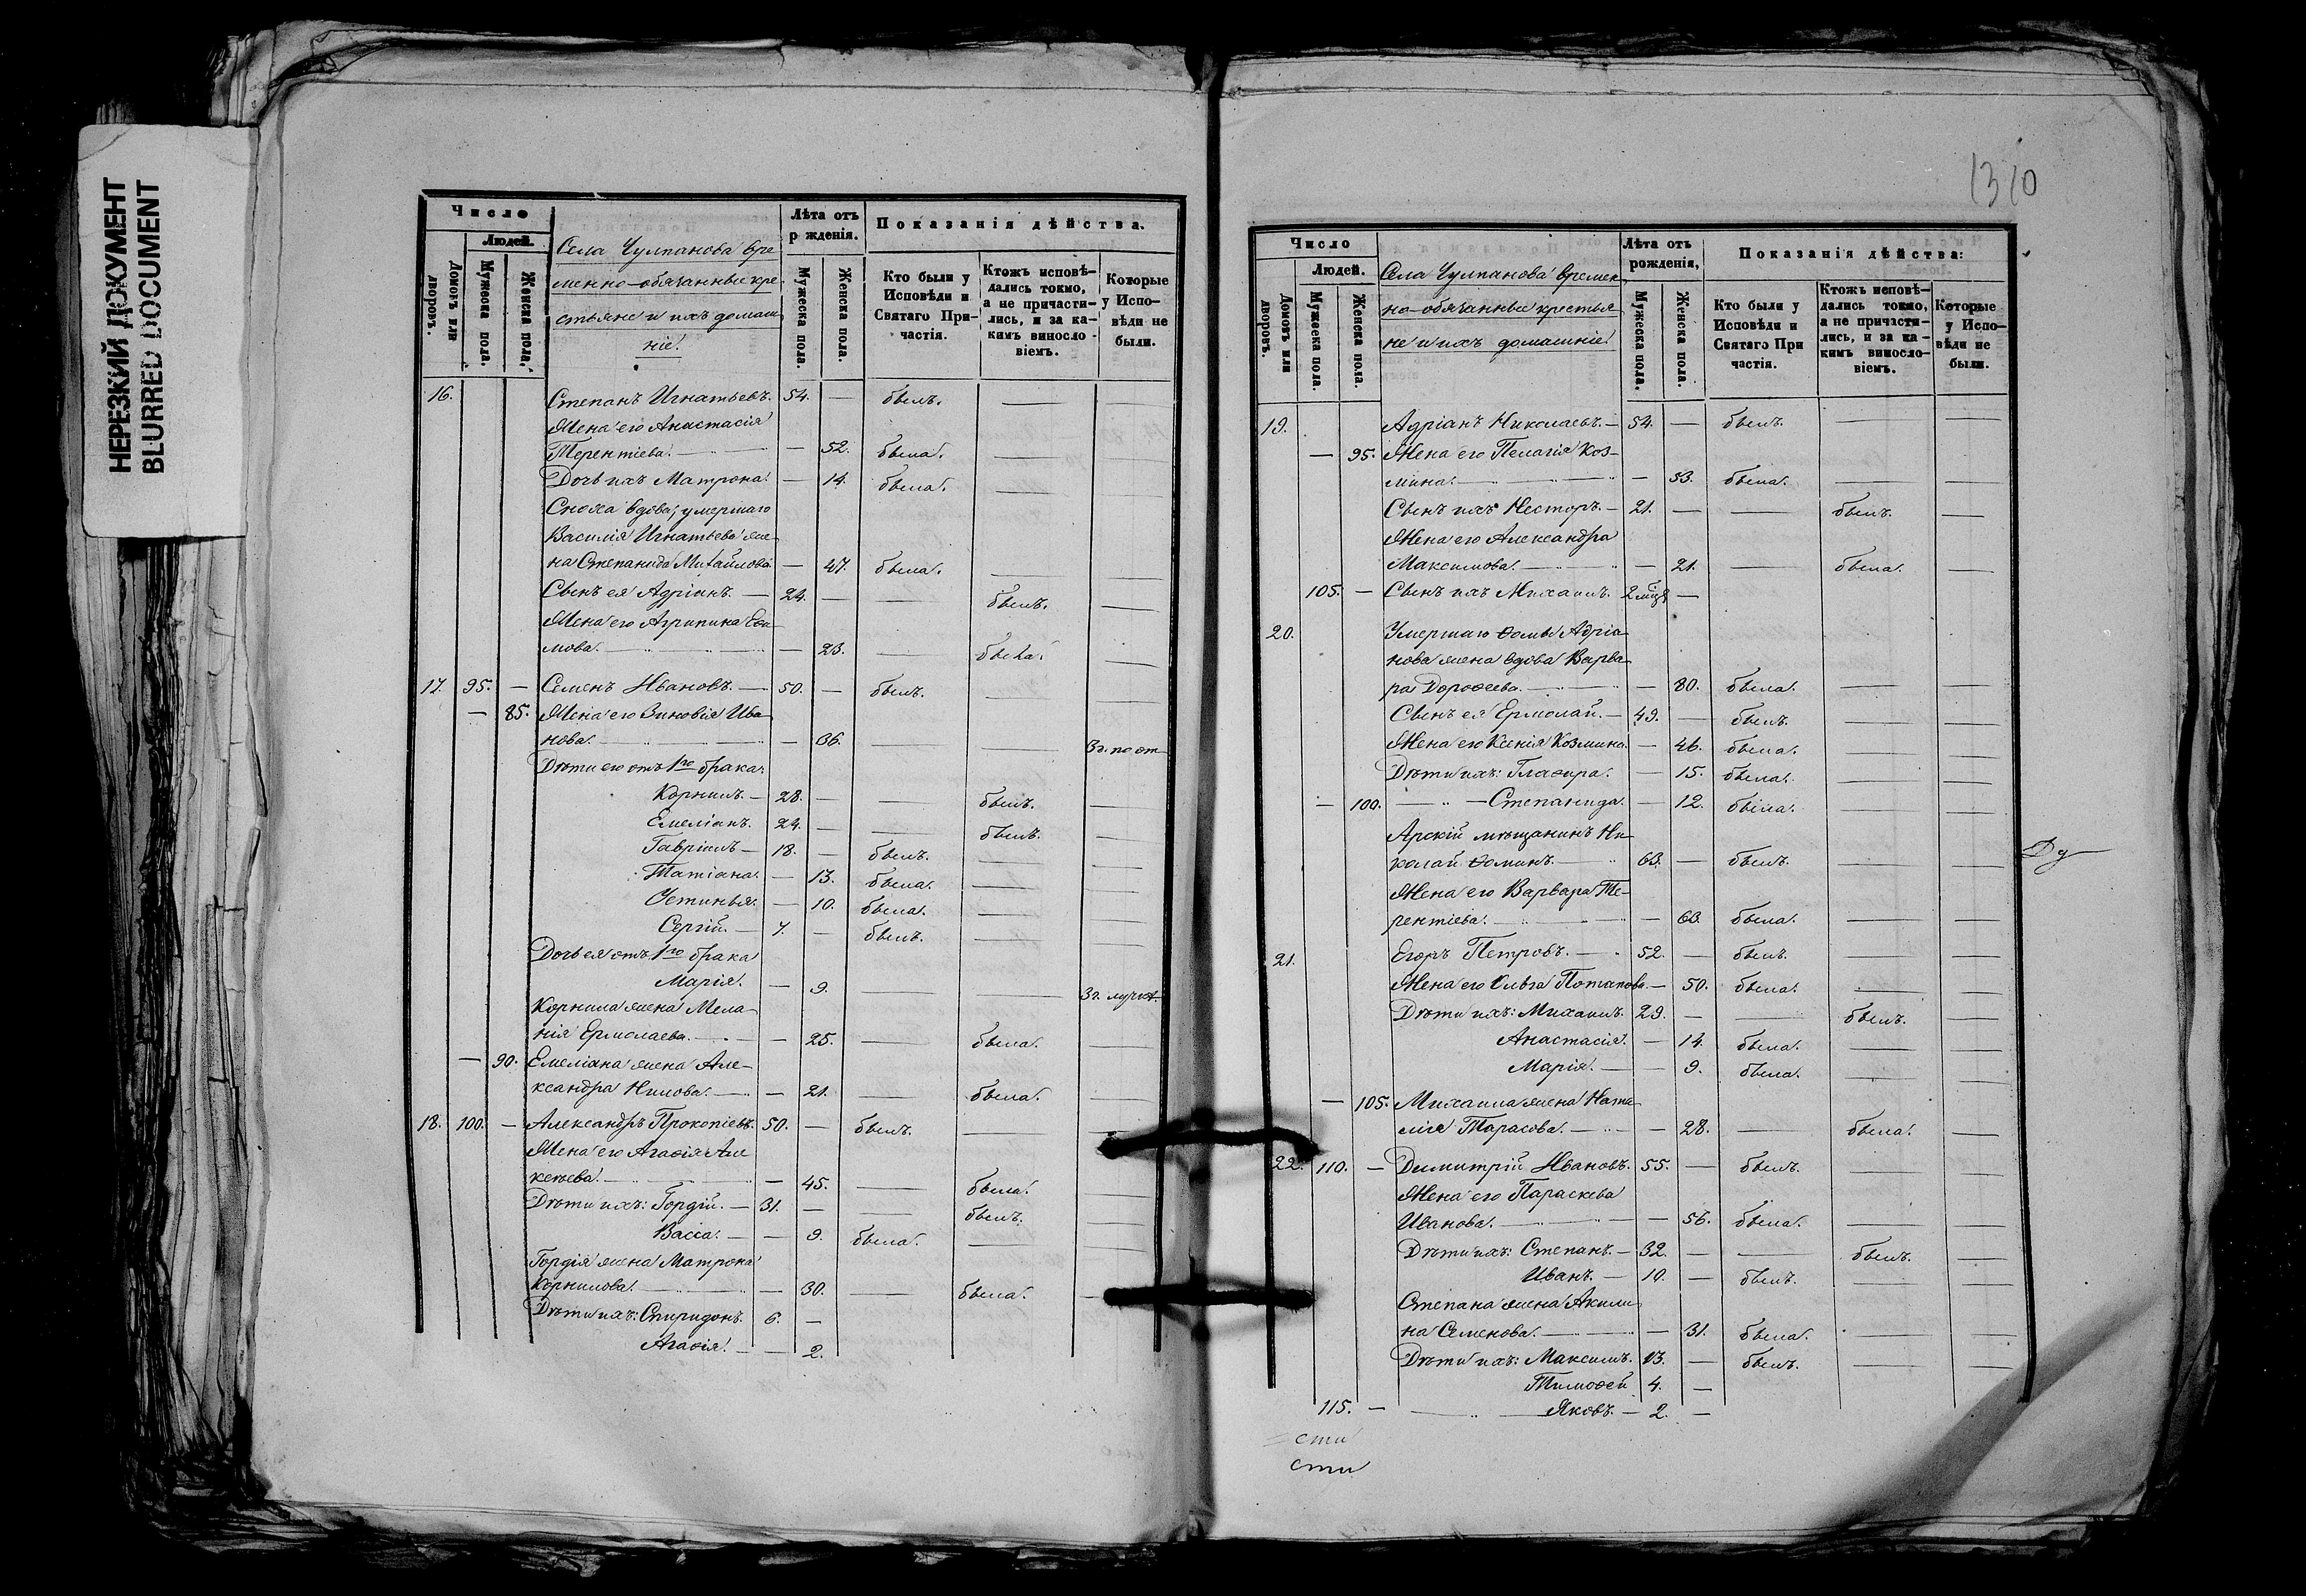 НЕРЕЗКИЙ ДОКУМЕНТ
BLURRED DOCUMENT
Число
Людей.
Домовъ или дворовъ.
Мужеска пола.
Женска пола.
Села Чулпанова вре
менно-обязанные кре
стьяне и ихъ домаш
ніе.
Лѣта отъ
р жденія.
Мужеска пола.
Женска пола.
Показанія дѣйства.
Кто были у
Исповѣди и
Святаго При-
частія.
Ктожъ исповѣ-
дались токмо,
а не причасти-
лись, и за ка-
кимъ виносло-
віемъ.
Которые
у Испо-
вѣди не
были.
16. Степанъ Игнатьевъ. 54. — былъ.
Жена его Анастасія
Терентіева. — 52. была.
Дочь ихъ Матрона. — 14. была.
Сноха вдова, умершаго
Василія Игнатьева же
на Степанида Михайлова — 47. была.
Сынъ ея Адріанъ. — 24. — — былъ. —
Жена его Агрипина Ев
мова. — 23. — была. —
17. 95. — Семенъ Ивановъ. — 50. — былъ.
— 85. Жена его Зиновія Ива
нова. — 36. — — За. по от
Дѣти его отъ 1го брака:
Корнилъ. — 28. — — былъ. —
Емеліанъ. 24. — — былъ. —
Гавріилъ — 18. — былъ. — —
Татіана. — 13. была. — —
Устинья. — 10. была. — —
Сергій. — 7. — былъ. — —
Дочь ея отъ 1го брака
Марія. — 9. — —
Корнила жена Мела
нія Ермолаева. — 25. — была. —
— 90. Емеліана жена Але-
ксандра Нилова. — 21. — была. —
18. 100. — Александръ Прокопіевъ. 50. — былъ. — —
Жена его Агаѳія Але
ксѣева. — 45. — была. —
Дѣти ихъ: Гордій. — 31. — — былъ. —
Васса. — — 9. была. — —
Гордія жена Матрона
Корнилова. — 30. — была. —
Дѣти ихъ: Спиридонъ. 6. —
Агаѳія. — — 2.
1310
Число
Людей.
Домовъ или дворовъ.
Мужеска пола.
Женска пола.
Села Чулпанова времен
но-обязанные крестья
не и ихъ домашніе.
Лѣта отъ
рожденія,
Мужеска пола.
Женска пола.
Показанія дѣйства:
Кто были у
Исповѣди и
Святаго При
частія.
Ктожъ исповѣ-
дались токмо,
а не причасти-
лись, и за ка-
кимъ виносло-
віемъ.
Которые
у Испо-
вѣди не
были.
19. Адріанъ Николаевъ. — 54. — былъ. — —
— 95. Жена его Пелагія Коз-
мина. — 53. была. — —
Сынъ ихъ Несторъ. — 21. — — былъ. —
Жена его Александра
Максимова. — 21. — была. —
105. — Сынъ ихъ Михаилъ. 2 мѣ —
20. Умершаго Ѳомы Адріа
нова жена вдова Варва
ра Дороѳеева. — 80. была. — —
Сынъ ея Ермолай. — 49. — былъ. — —
Жена его Ксенія Козмина. — 46. была. — —
Дѣти ихъ: Глафира. — 15. была. — —
— 100. — Степанида. — 12. была. — —
Арскій мѣщанинъ Ни
колай Ѳоминъ. — 63. — былъ. — —
Ду
Жена его Варвара Те-
рентіева. — 63. была. — —
21. Егоръ Петровъ. — 52. — былъ. — —
Жена его Ольга Потапова. — 50. была. — —
Дѣти ихъ: Михаилъ. 29. — — былъ. —
Анастасія. — 14. была. — —
Марія. — — 9. была. — —
— 105. Михаила жена Ната
лія Тарасова. — 28. — была. —
22. 110. — Димитрій Ивановъ. 55. — былъ. — —
Жена его Параскева
Иванова. — 56. была. — —
Дѣти ихъ: Степанъ. — 32. — — былъ. —
Иванъ. — 10. — былъ. — —
Степана жена Акили
на Семенова. — 31. была. — —
Дѣти ихъ: Максимъ. 13. — былъ. — —
Тимоѳей 4. —
115. — — Яковъ. — 2. —
сти
сти